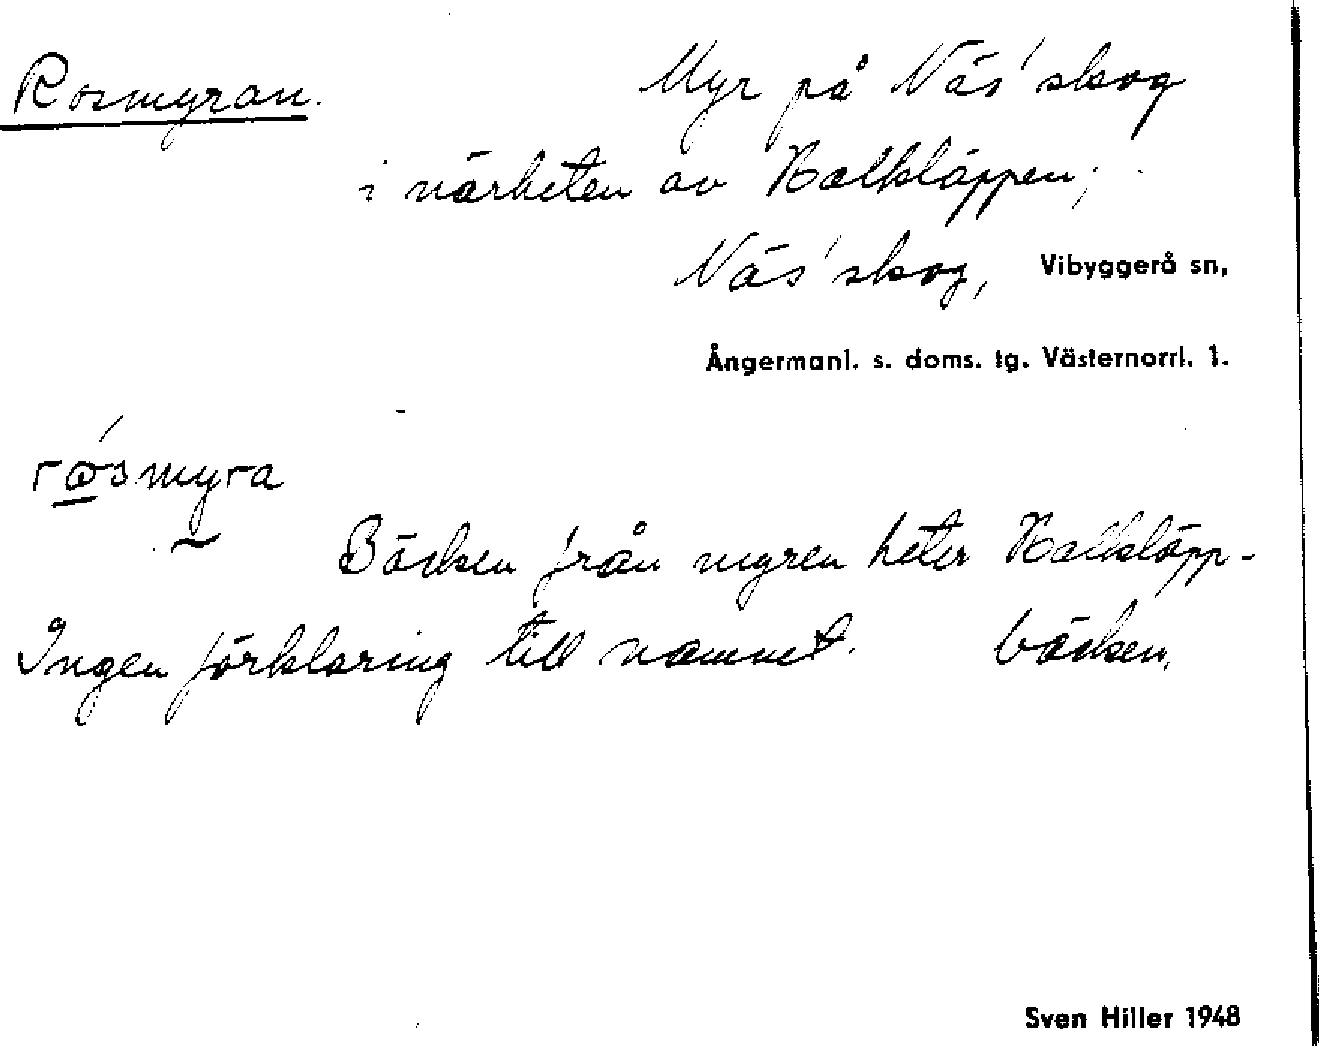 Rosmyran. Myr på Näs' skog
i närheten av Kalkläppen;
Näs' skog, Vibyggerå sn,
Ångermanl. s. doms. tg. Västernorrl. l.
røsmyra
Bäcken från myren heter Kalkläpp-
Ingen förklaring till namnet. bäcken.
Sven Hiller 1948